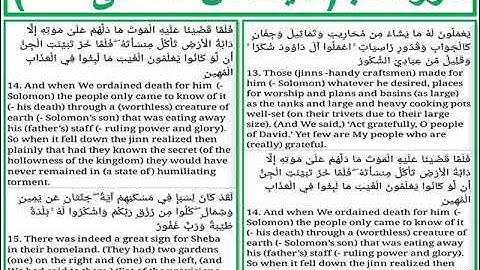 فَلَمَّا قَضَيْنَا عَلَيْهِ الْمَوْتَ مَا دَلَّهُمْ عَلَىٰ مَوْتِهِ إِلَّا
دَابَّةُ الْأَرْضِ تَأْكُلُ مِنسَأَتَهُ ۖ فَلَمَّا خَرَّ تَبَيَّنَتِ الْجِنُّ
أَن لَّوْ كَانُوا يَعْلَمُونَ الْغَيْبَ مَا لَبِثُوا فِي الْعَذَابِ
الْمُهِينِ
14. And when We ordained death for him (-
Solomon) the people only came to know of it
(- his death) through a (worthless) creature of
earth (- Solomon's son) that was eating away
his (father's) staff (- ruling power and glory).
So when it fell down the jinn realized then
plainly that had they known the secret (of the
hollowness of the kingdom) they would have
never remained in (a state of) humiliating
torment.
لَقَدْ كَانَ لِسَبَإٍ فِي مَسْكَنِهِمْ آيَةٌ ۖ جَنَّتَانِ عَن يَمِينٍ
وَشِمَالٍ ۖ كُلُوا مِن رِّزْقِ رَبِّكُمْ وَاشْكُرُوا لَهُ ۚ بَلْدَةٌ
طَيِّبَةٌ وَرَبٌّ غَفُورٌ
15. There was indeed a great sign for Sheba
in their homeland. (They had) two gardens
(one) on the right and (one) on the left, (and
يَعْمَلُونَ لَهُ مَا يَشَاءُ مِن مَّحَارِيبَ وَتَمَاثِيلَ وَجِفَانٍ
كَالْجَوَابِ وَقُدُورٍ رَّاسِيَاتٍ ۚ اعْمَلُوا آلَ دَاوُودَ شُكْرًا ۚ
وَقَلِيلٌ مِّنْ عِبَادِيَ الشَّكُورُ
13. Those (jinns -handy craftsmen) made for
him (- Solomon) whatever he desired, places
for worship and plans and basins (as large)
as the tanks and large and heavy cooking pots
well-set (on their trivets due to their large
size). (And We said,) 'Act gratefully, O people
of David.' Yet few are My people who are
(really) grateful.
فَلَمَّا قَضَيْنَا عَلَيْهِ الْمَوْتَ مَا دَلَّهُمْ عَلَىٰ مَوْتِهِ إِلَّا
دَابَّةُ الْأَرْضِ تَأْكُلُ مِنسَأَتَهُ ۖ فَلَمَّا خَرَّ تَبَيَّنَتِ الْجِنُّ
أَن لَّوْ كَانُوا يَعْلَمُونَ الْغَيْبَ مَا لَبِثُوا فِي الْعَذَابِ
الْمُهِينِ
14. And when We ordained death for him (-
Solomon) the people only came to know of it
(- his death) through a (worthless) creature of
earth (- Solomon's son) that was eating away
his (father's) staff (- ruling power and glory).
So when it fell down the jinn realized then